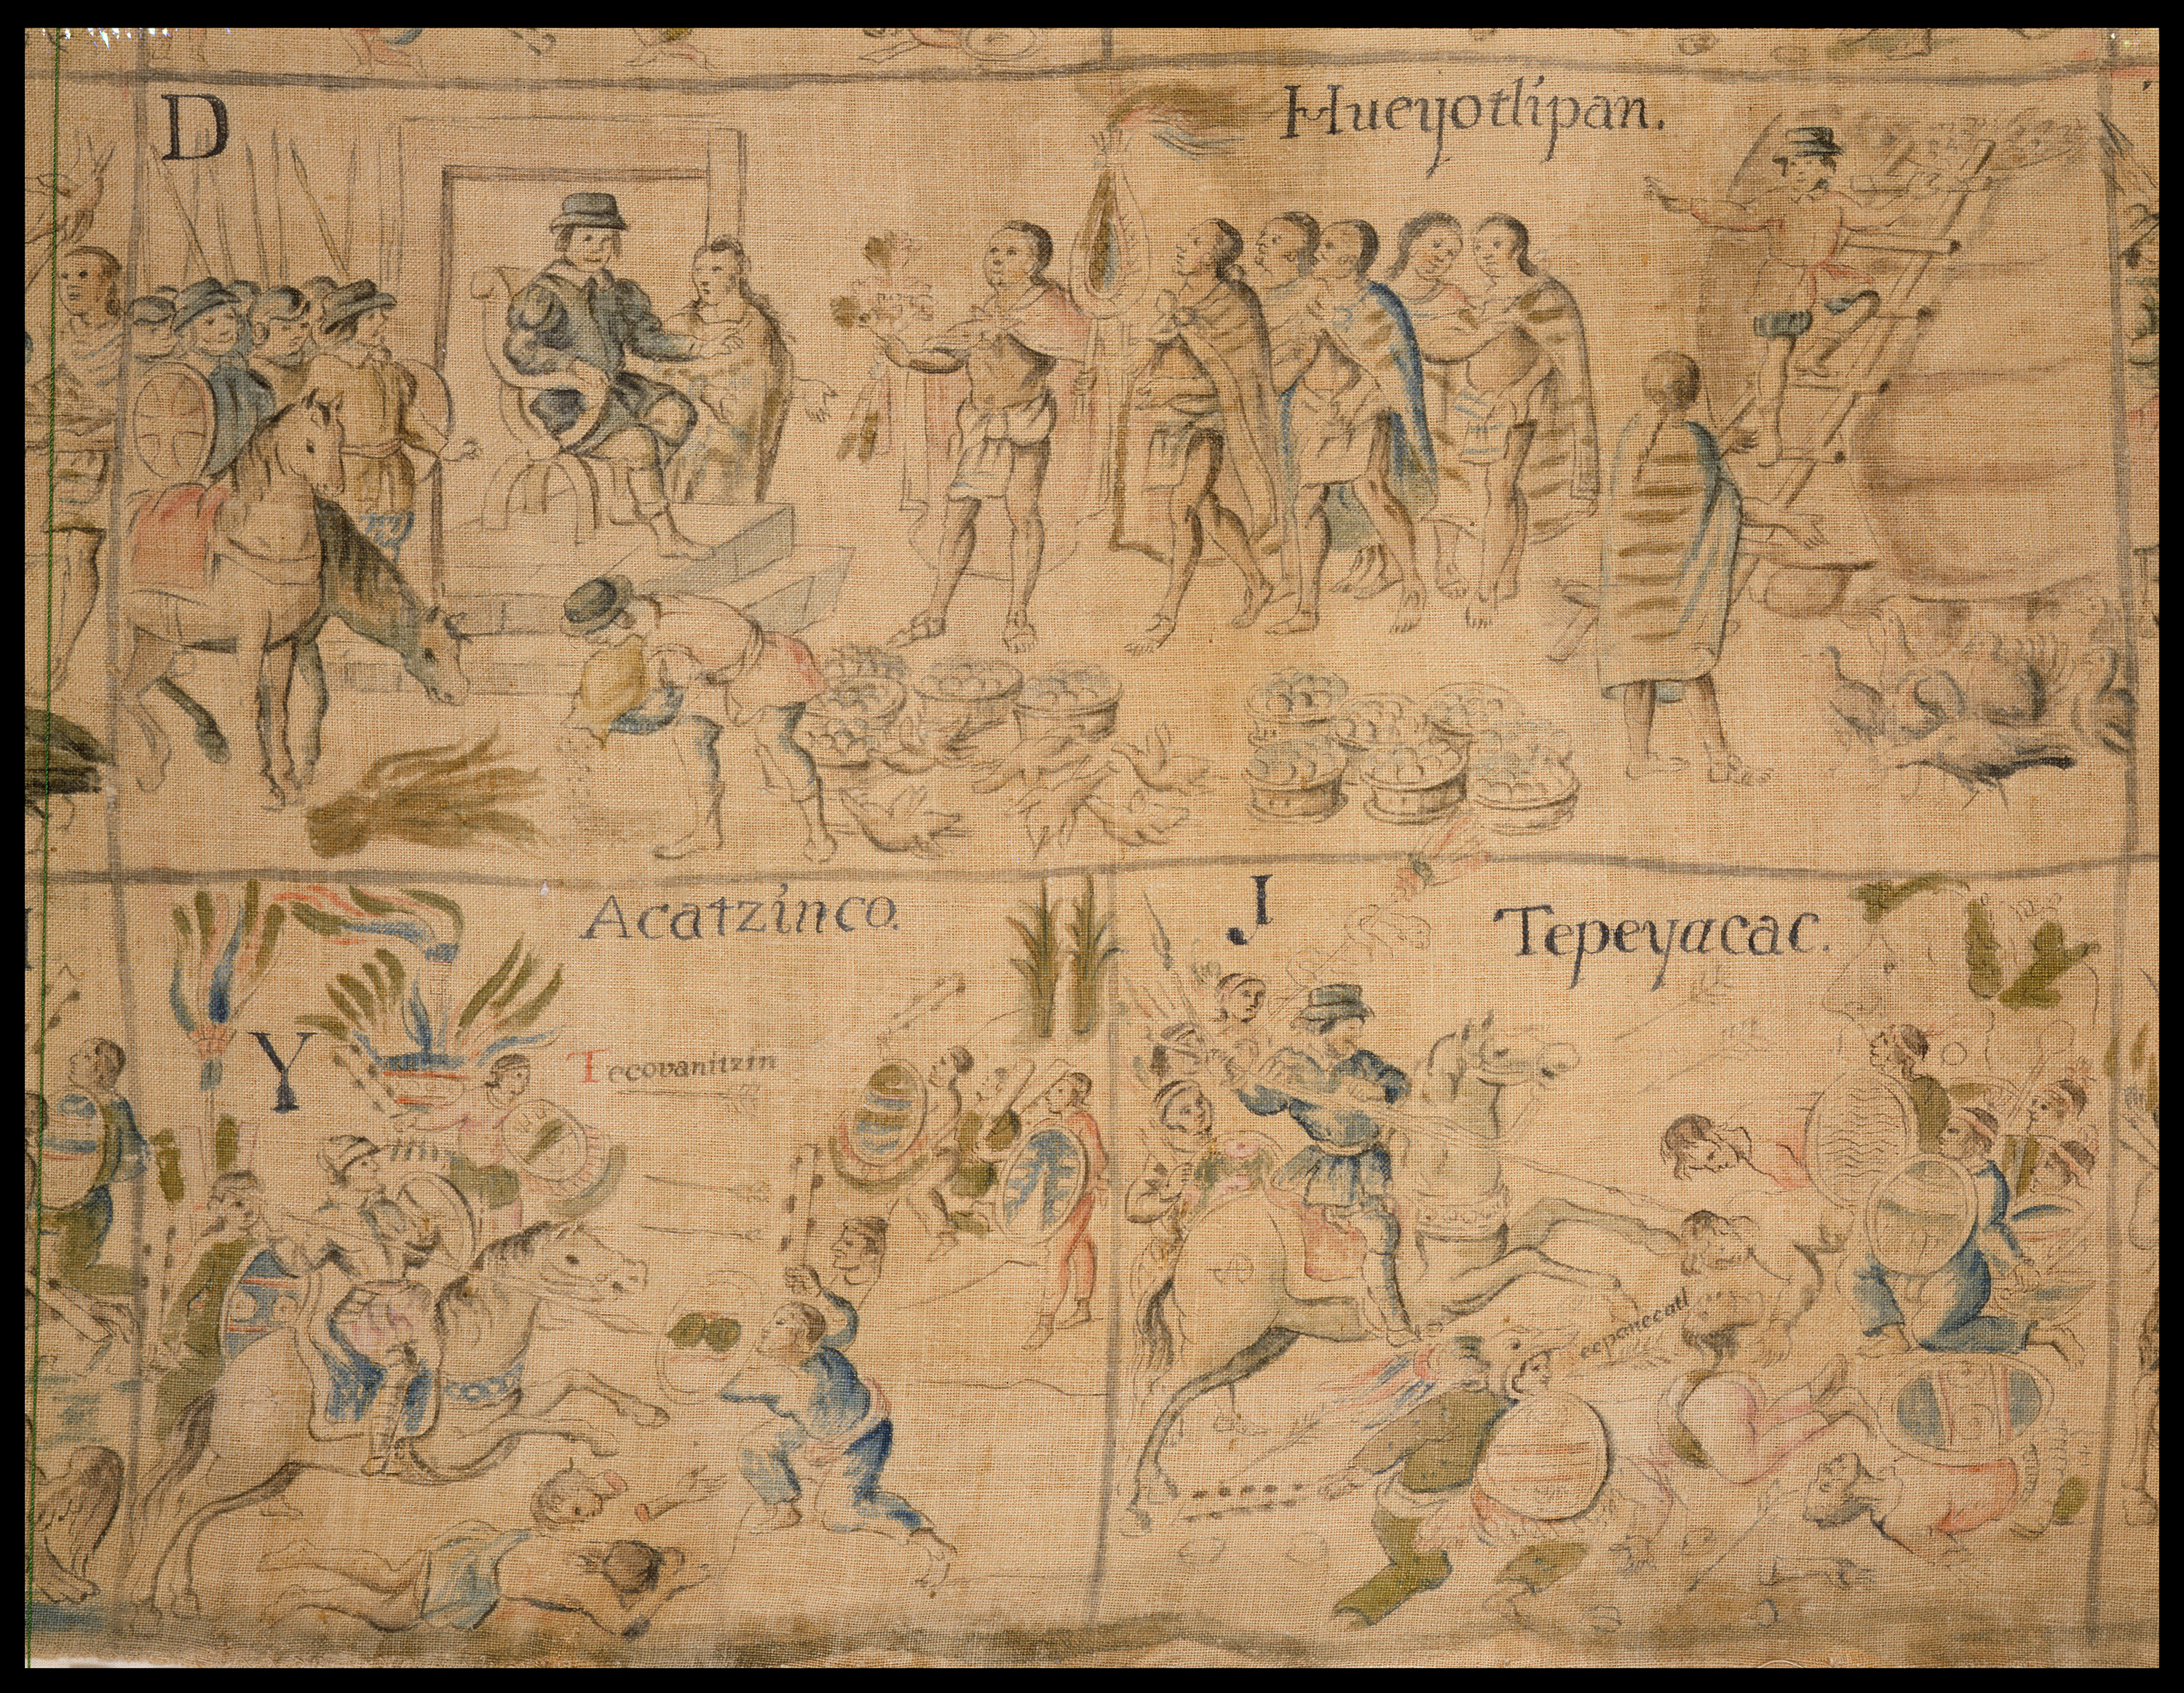 D
Hueyotlipan.
Acatzinco.
Y
Tecovanitzin
J
Tepeyacac.